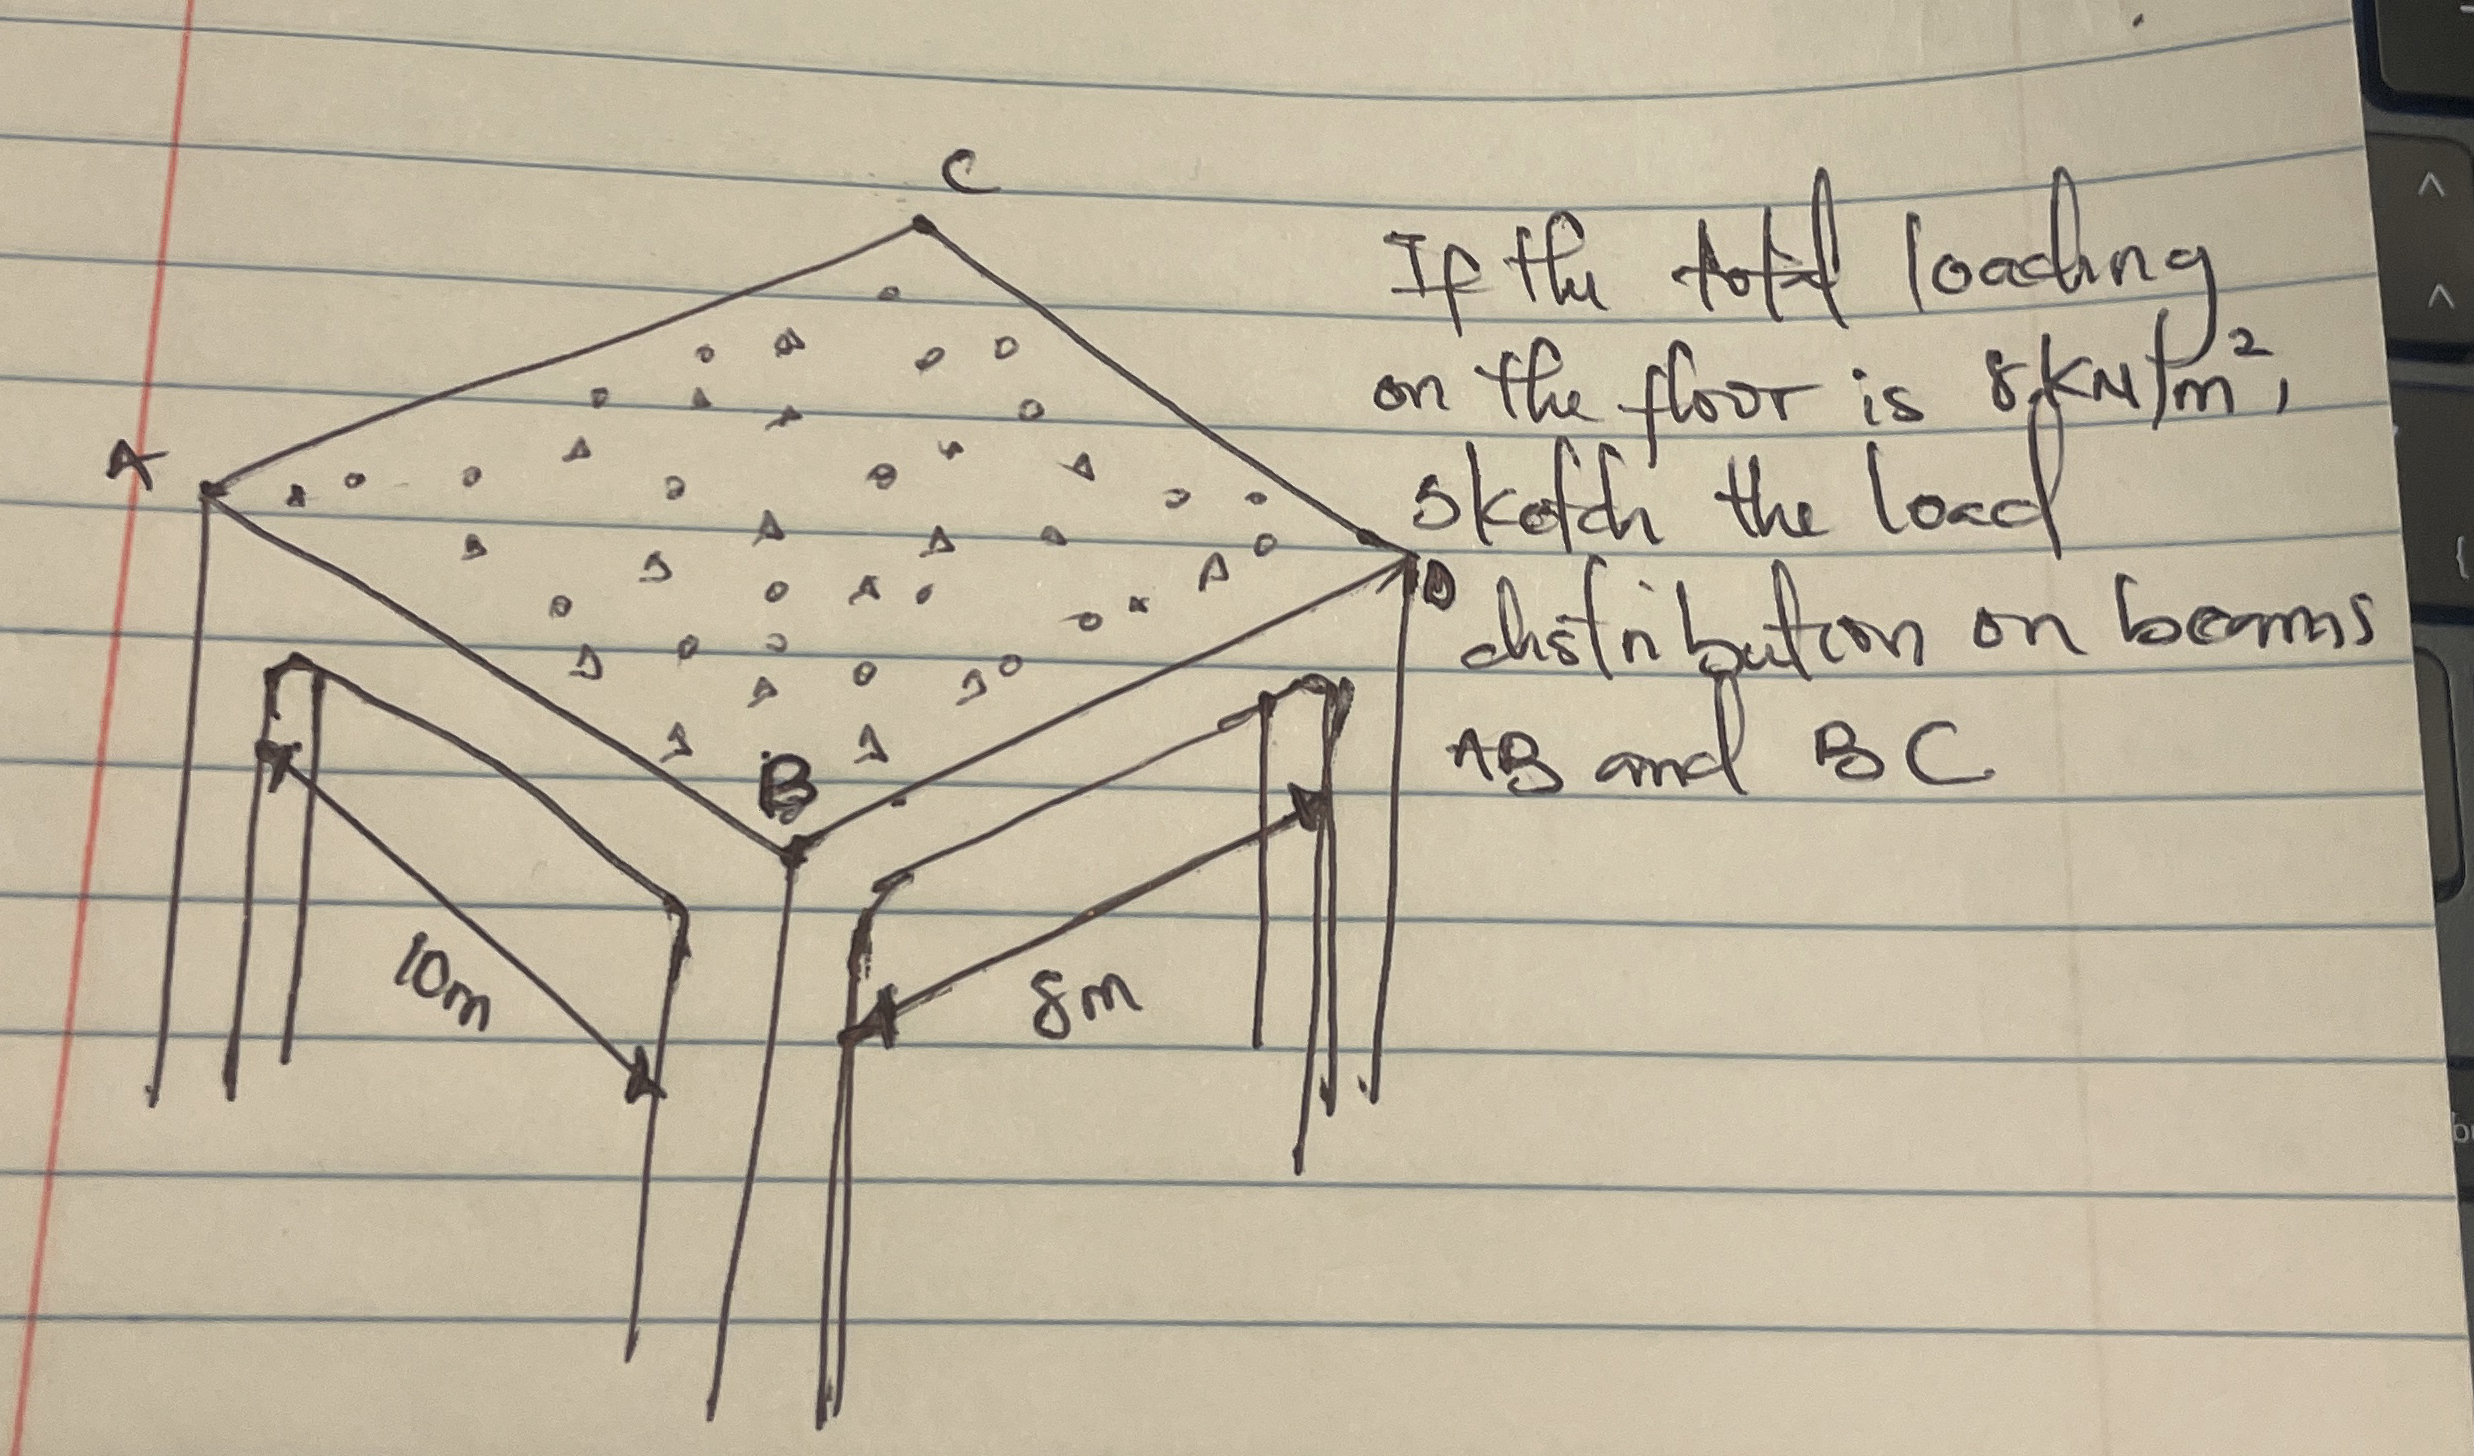 C
If the total loading
on the floor is 8kN/m²,
A
sketch the load
D
distribution on beams
B
AB and BC
10m
8m